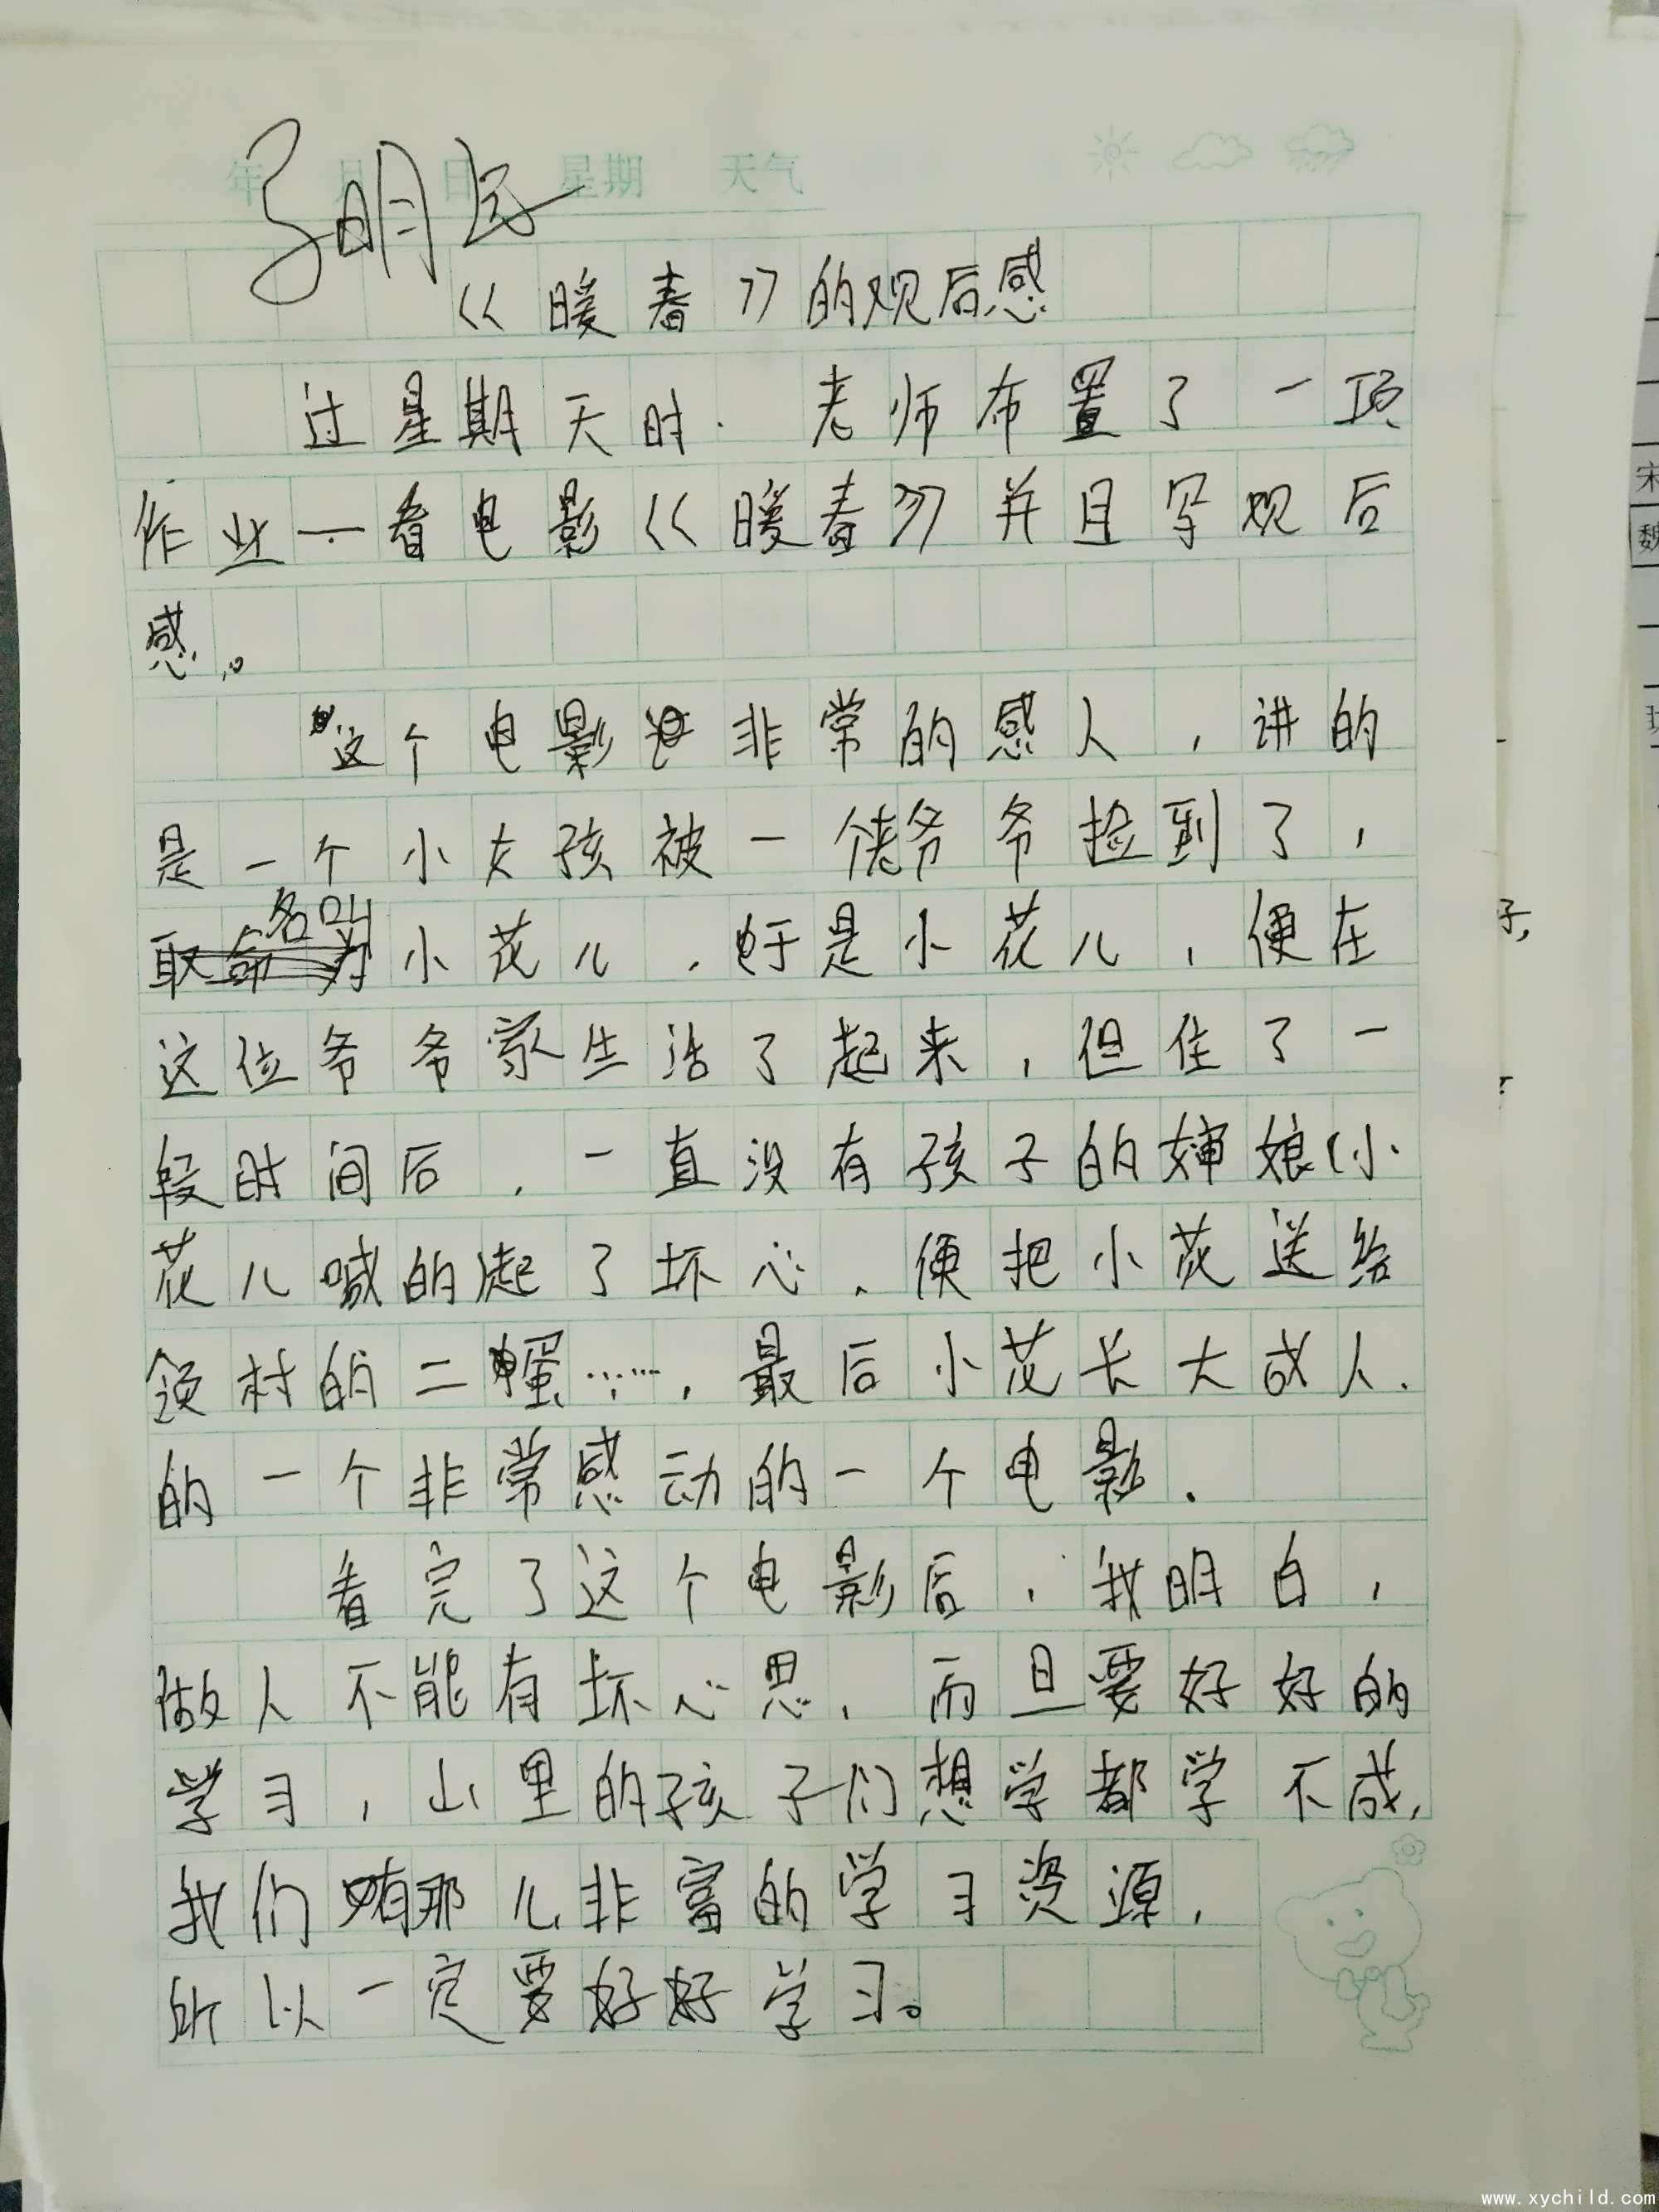 年 月 日 星期 天气
明
《暖春》的观后感
过星期天时. 老师布置了一项
作业一看电影《暖春》并且写观后
感。
这个电影非常的感人,讲的
是一个小女孩被一个老爷爷捡到了,
取名叫小花儿,于是小花儿,便在
这位爷爷家生活了起来,但住了一
段时间后,一直没有孩子的婶娘(小
花儿喊的)起了坏心,便把小花送给
村的二蛋……,最后小花长大成人.
的一个非常感动的一个电影.
看完了这个电影后,我明白,
做人不能有坏心思,而且要好好的
学习,山里的孩子们想学都学不成,
我们有那儿非富的学习资源,
所以一定要好好学习。
宋
魏
子,
www.xychild.com